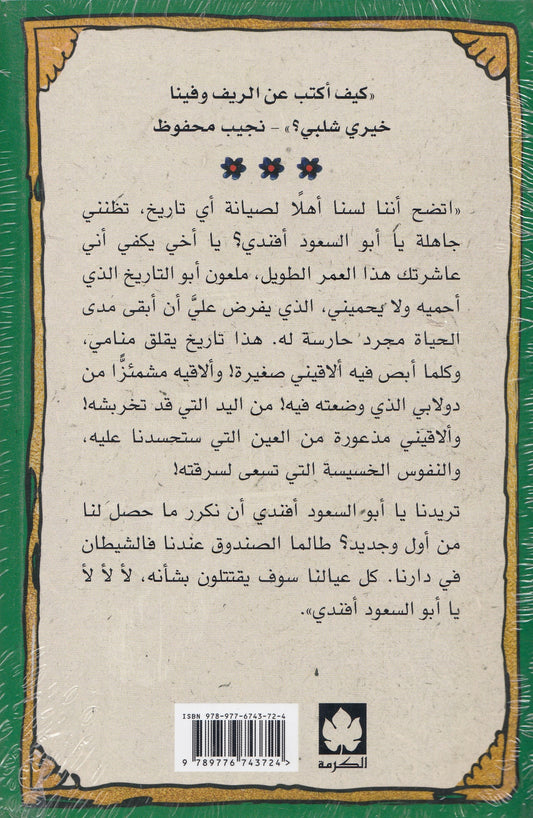 «كيف أكتب عن الريف وفينا
خيري شلبي؟» – نجيب محفوظ
«اتضح أننا لسنا أهلًا لصيانة أي تاريخ، تظنني
جاهلة يا أبو السعود أفندي؟ يا أخي يكفي أني
عاشرتك هذا العمر الطويل، ملعون أبو التاريخ الذي
أحميه ولا يحميني، الذي يفرض عليَّ أن أبقى مدى
الحياة مجرد حارسة له. هذا تاريخ يقلق منامي،
وكلما أبص فيه ألاقيني صغيرة! وألاقيه مشمئزًّا من
دولابي الذي وضعته فيه! من اليد التي قد تخربشه!
وألاقيني مذعورة من العين التي ستحسدنا عليه،
والنفوس الخسيسة التي تسعى لسرقته!
تريدنا يا أبو السعود أفندي أن نكرر ما حصل لنا
من أول وجديد؟ طالما الصندوق عندنا فالشيطان
في دارنا. كل عيالنا سوف يقتتلون بشأنه، لأ لأ لأ
يا أبو السعود أفندي».
ISBN 978-977-6743-72-4
9 789776 743724
الكرمة